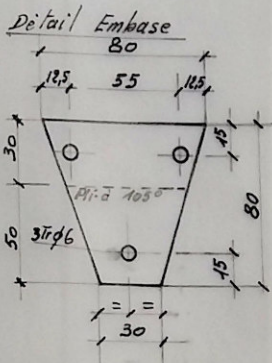 Détail Embase
80
12,5 55 12,5
30
15
Pli à 105°
80
50
3Trφ6
15
= =
30